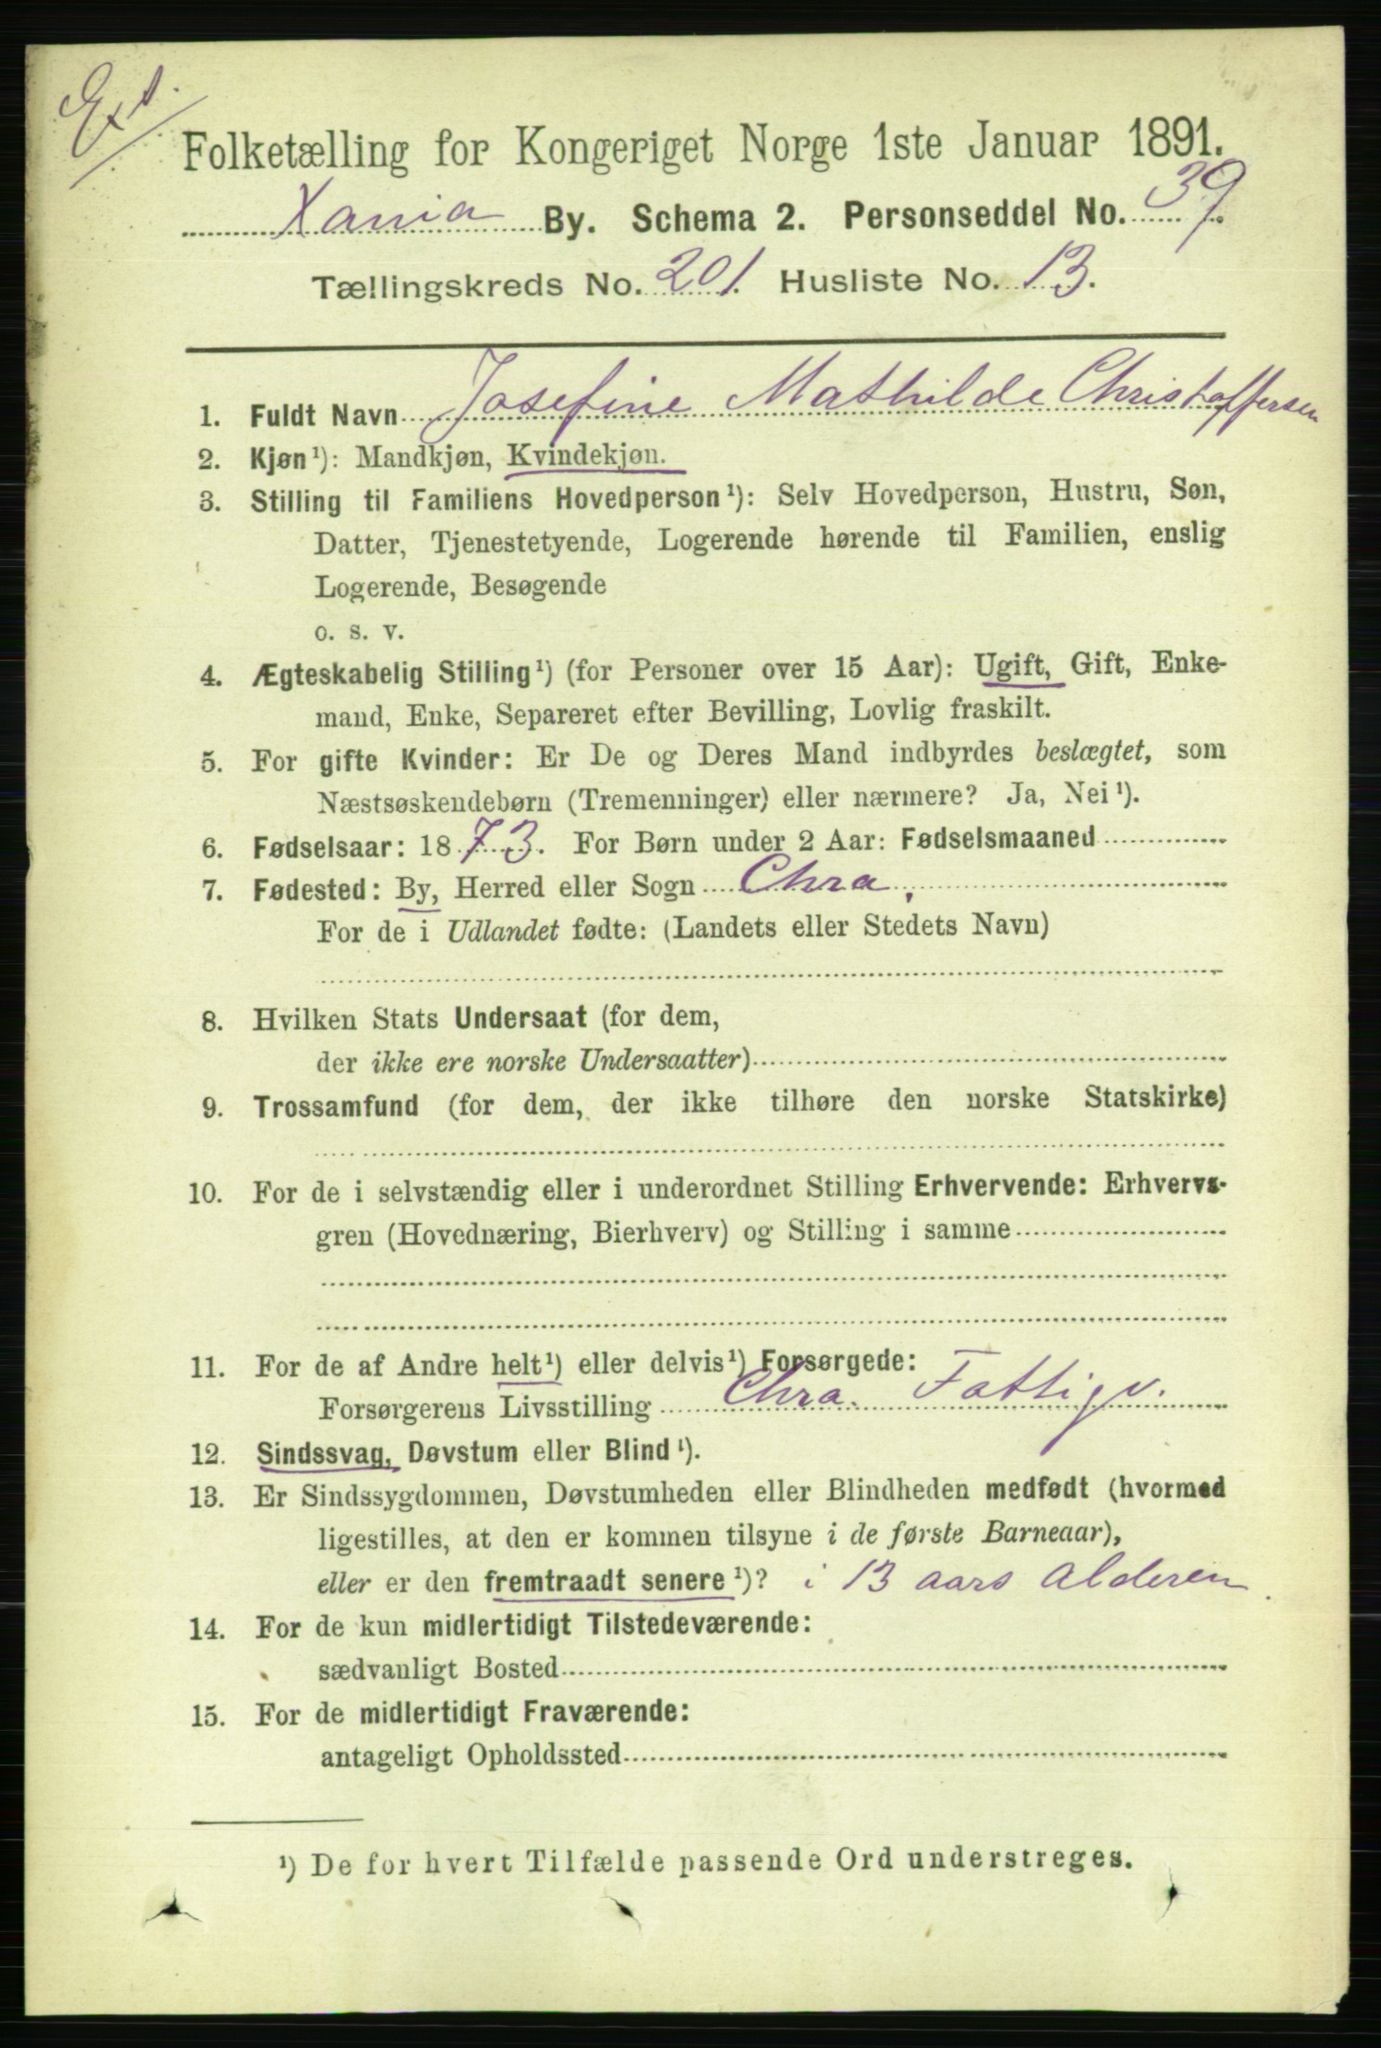 Ext.
Folketælling for Kongeriget Norge 1ste Januar 1891.
Xania By. Schema 2. Personseddel No. 39.
Tællingskreds No. 201. Husliste No. 13.
1. Fuldt Navn Josefine Mathilde Christoffersen
2. Kjøn¹): Mandkjøn, Kvindekjøn.
3. Stilling til Familiens Hovedperson¹): Selv Hovedperson, Hustru, Søn,
Datter, Tjenestetyende, Logerende hørende til Familien, enslig
Logerende, Besøgende
o. s. v.
4. Ægteskabelig Stilling¹) (for Personer over 15 Aar): Ugift, Gift, Enke-
mand, Enke, Separeret efter Bevilling, Lovlig fraskilt.
5. For gifte Kvinder: Er De og Deres Mand indbyrdes beslægtet, som
Næstsøskendebørn (Tremenninger) eller nærmere? Ja, Nei¹).
6. Fødselsaar: 1873. For Børn under 2 Aar: Fødselsmaaned
7. Fødested: By, Herred eller Sogn Chra.
For de i Udlandet fødte: (Landets eller Stedets Navn)
8. Hvilken Stats Undersaat (for dem,
der ikke ere norske Undersaatter)
9. Trossamfund (for dem, der ikke tilhøre den norske Statskirke)
10. For de i selvstændig eller i underordnet Stilling Erhvervende: Erhvervs-
gren (Hovednæring, Bierhverv) og Stilling i samme
11. For de af Andre helt¹) eller delvis¹) Forsørgede:
Forsørgerens Livsstilling Chra. Fattigv.
12. Sindssvag, Døvstum eller Blind¹).
13. Er Sindssygdommen, Døvstumheden eller Blindheden medfødt (hvormed
ligestilles, at den er kommen tilsyne i de første Barneaar),
eller er den fremtraadt senere¹)? i 13 aars Alderen
14. For de kun midlertidigt Tilstedeværende:
sædvanligt Bosted
15. For de midlertidigt Fraværende:
antageligt Opholdssted
¹) De for hvert Tilfælde passende Ord understreges.